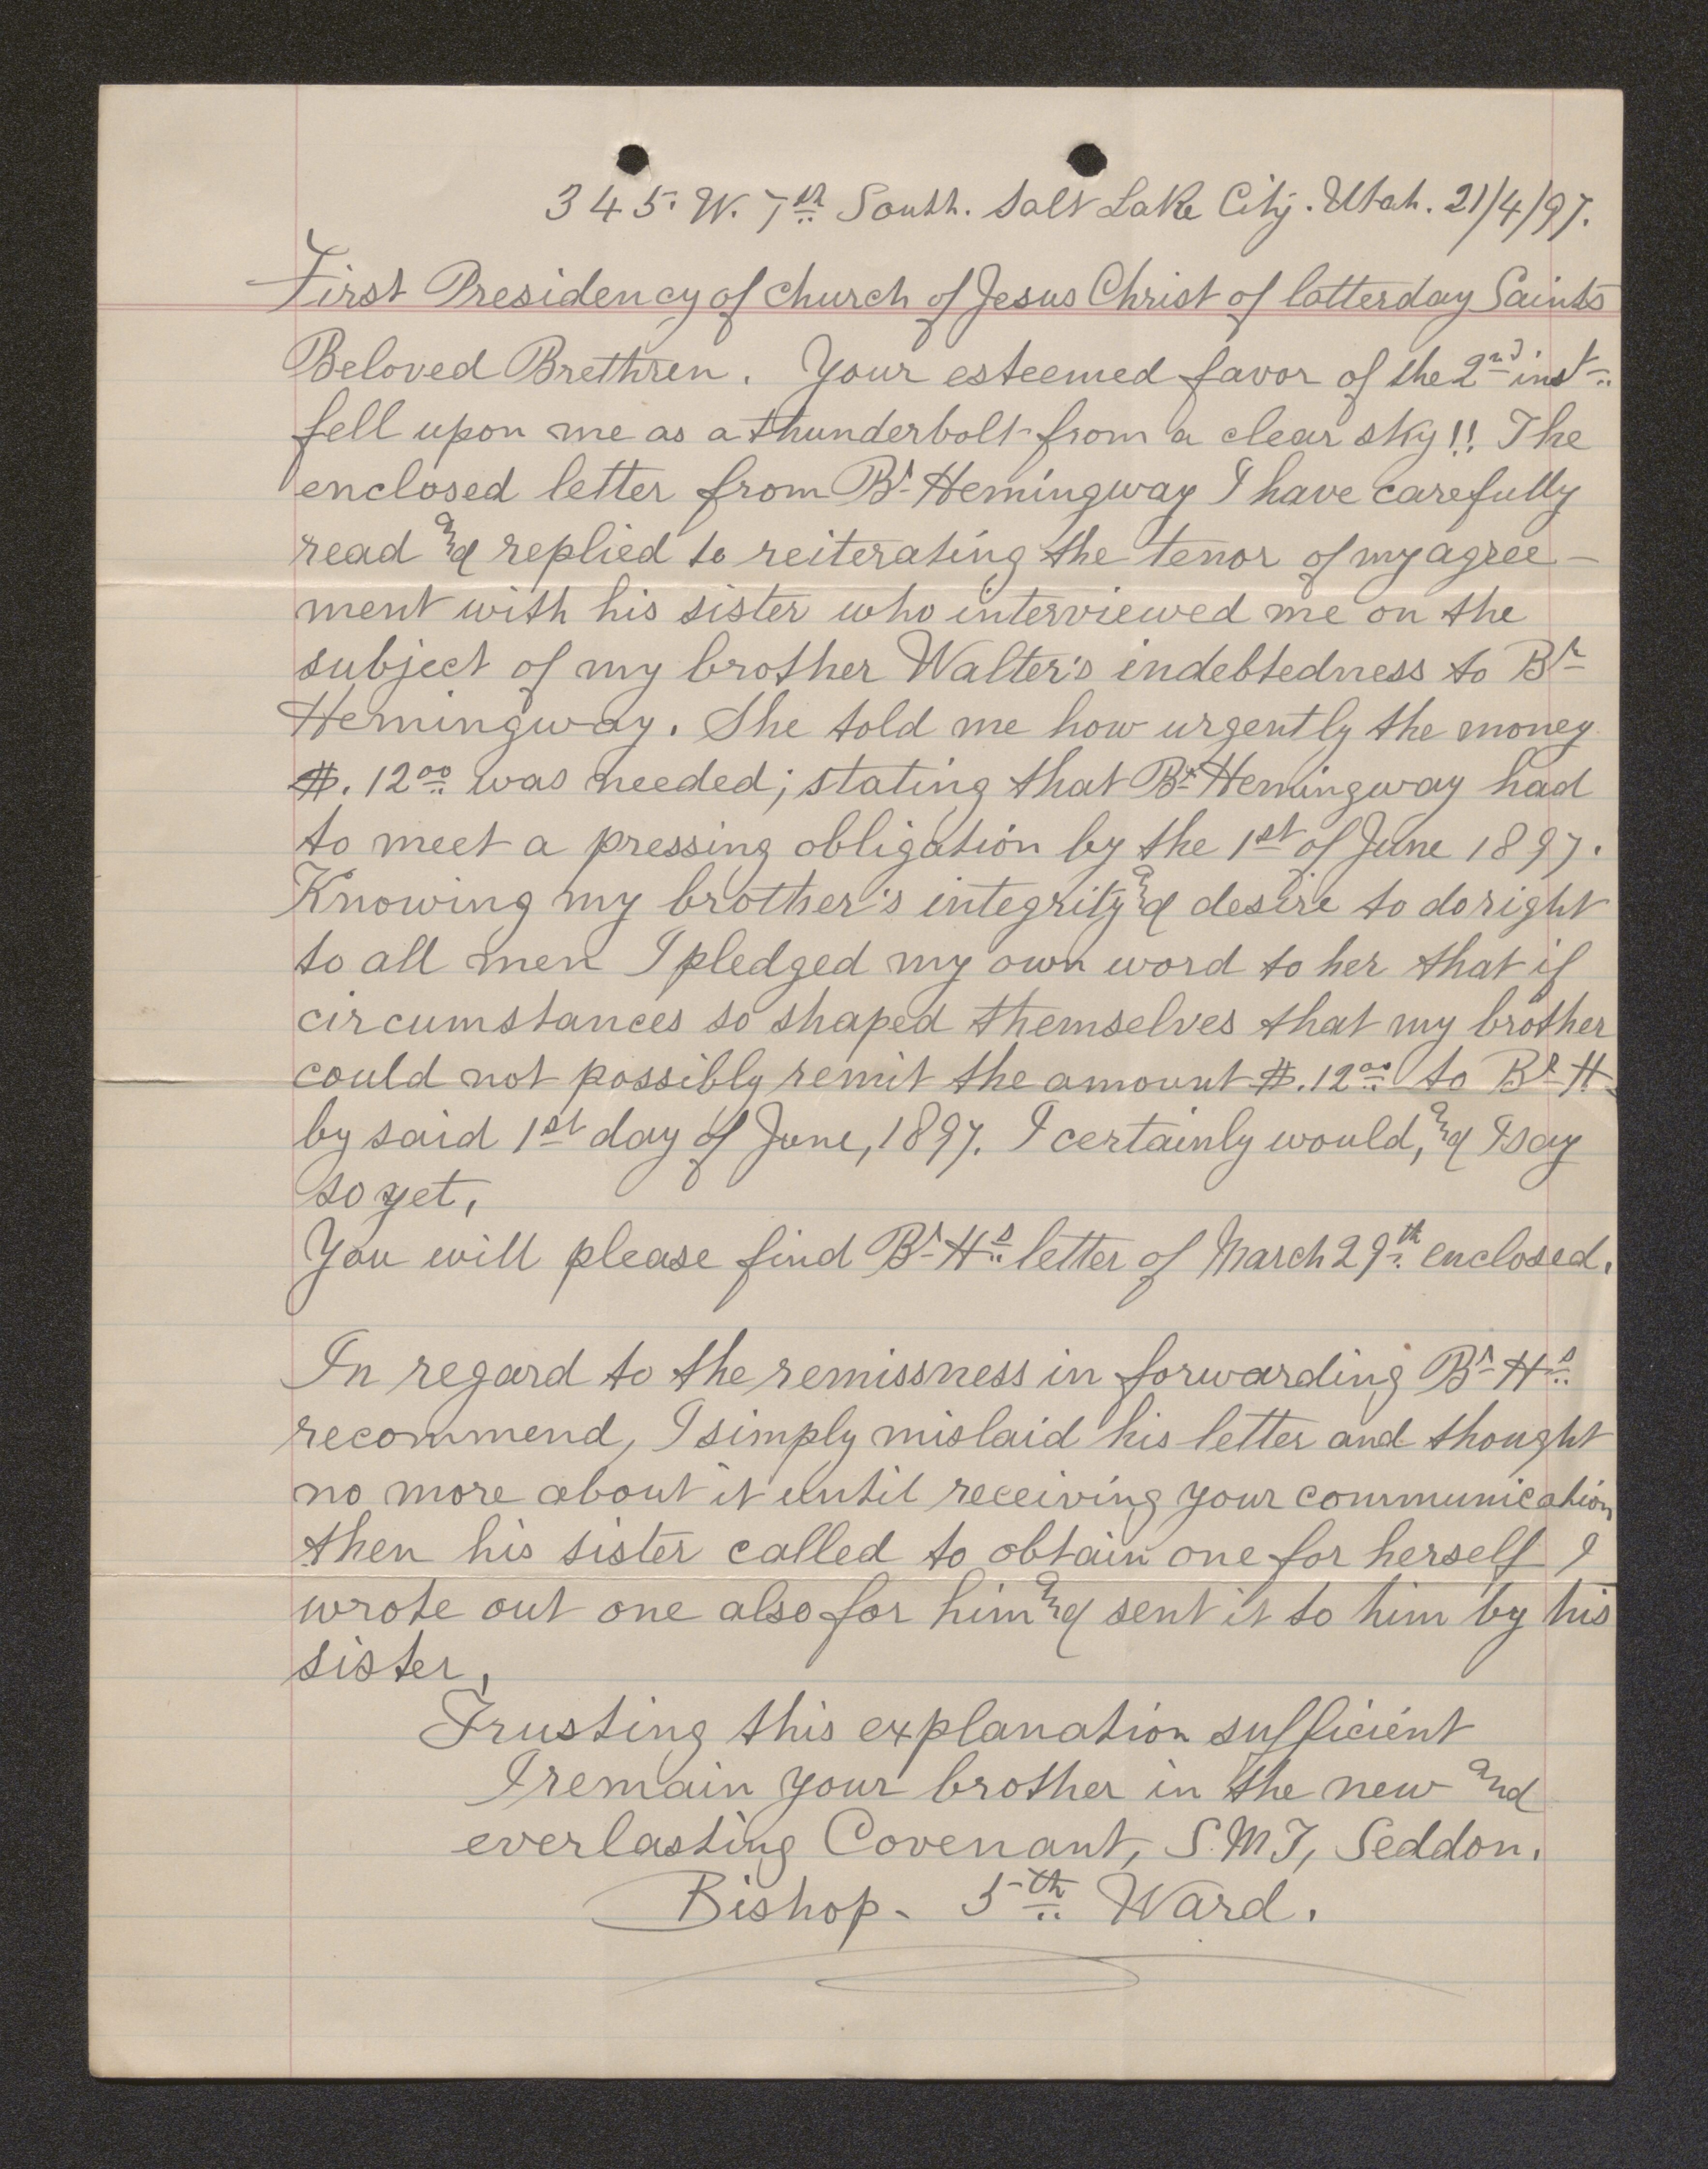 345. W. 7th South. Salt Lake City. Utah. 21/4/97.
First Presidency of church of Jesus Christ of latterday Saints
Beloved Brethren. Your esteemed favor of the 2nd inst
fell upon me as a thunderbolt from a clear sky!! The
enclosed letter from Br Hemingway I have carefully
read and replied to reiterating the tenor of my agree-
ment with his sister who interviewed me on the
subject of my brother Walter's indebtedness to Br
Hemingway. She told me how urgently the money
$. 12 00 was needed; stating that Br Hemingway had
to meet a pressing obligation by the 1st of June 1897.
Knowing my brother's integrity and desire to do right
to all men I pledged my own word to her that if
circumstances so shaped themselves that my brother
could not possibly remit the amount $. 12 00 to Br H.
by said 1st day of June, 1897. I certainly would, and I say
so yet.
You will please find Br Hs letter of March 29th enclosed.
In regard to the remissness in forwarding Br Hs
recommend, I simply mislaid his letter and thought
no more about it until receiving your communication
then his sister called to obtain one for herself I
wrote out one also for him and sent it to him by his
sister.
Trusting this explanation sufficient
I remain your brother in the new and
everlasting Covenant, S. M T, Seddon.
Bishop - 5th Ward.